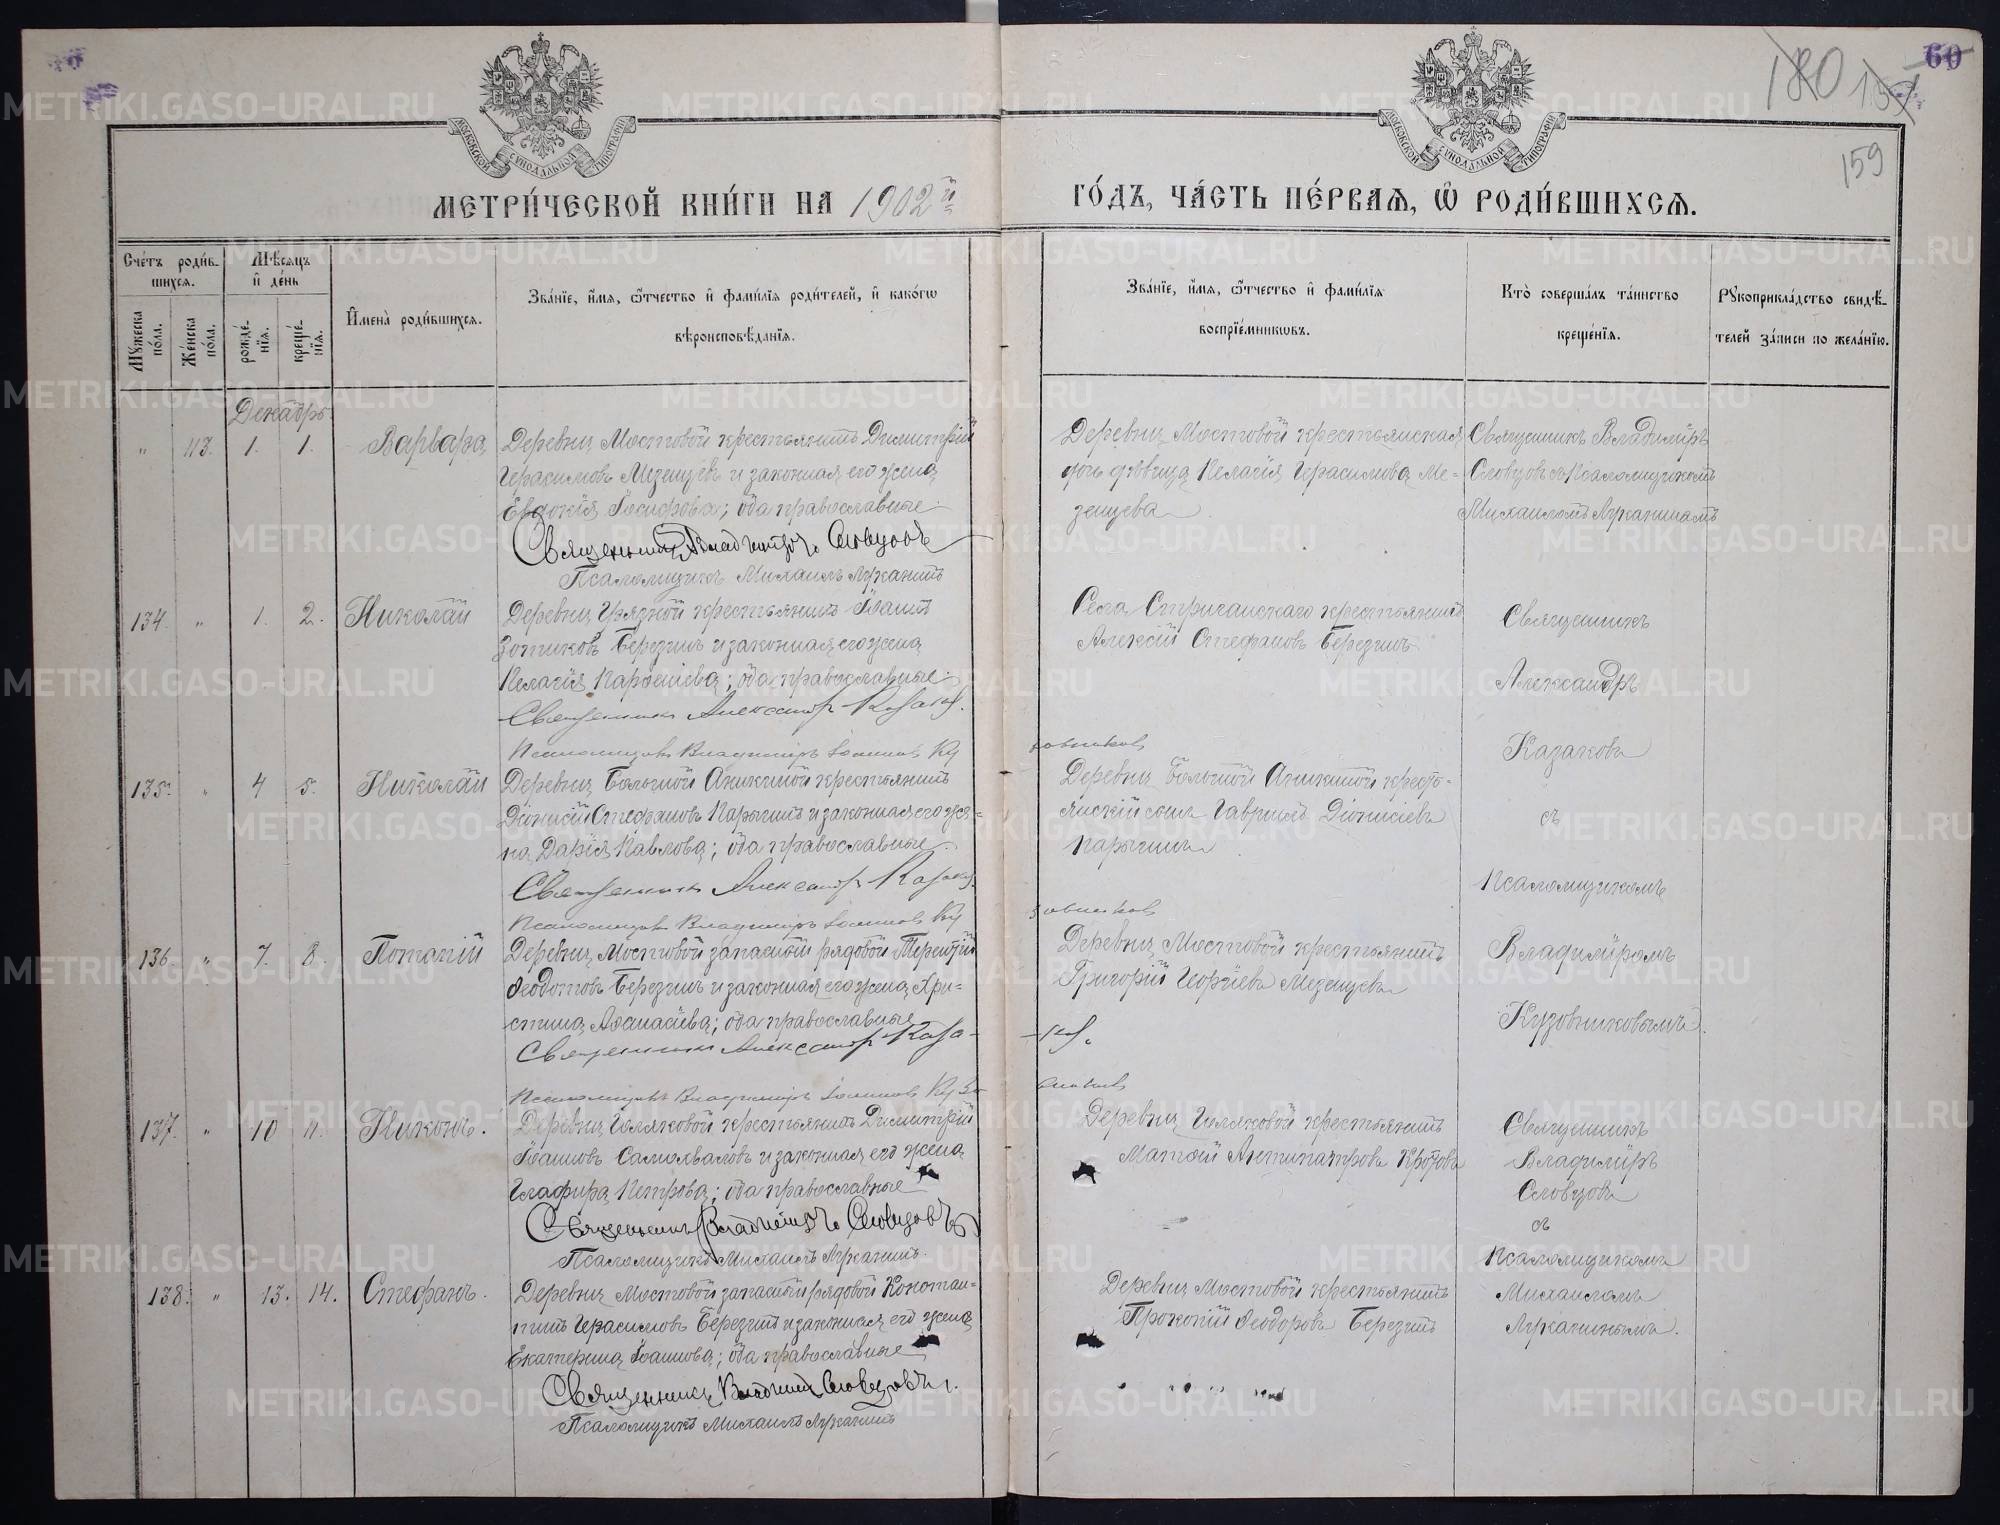 60
180
159
МОСКОВСКОЙ СѴНОДАЛЬНОЙ ТИПОГРАФІИ
МОСКОВСКОЙ СѴНОДАЛЬНОЙ ТИПОГРАФІИ
МЕТРИ́ЧЕСКОЙ КНИ́ГИ НА 1902й
ГО́ДЪ, ЧА́СТЬ ПЕ́РВАѦ, Ѡ҆ РОДИ́ВШИХСѦ.
Сче́тъ роди́в-
шихся.
Мѣ́сяцъ
и҆ де́нь
Мꙋ́жеска по́ла.
Же́нска по́ла.
рожде́нїя.
креще́нїя.
И҆мена̀ роди́вшихся.
Зва́нїе, и҆́мя, ѻ҆́тчество и҆ фами́лїя роди́телей, и҆ како́гѡ
вѣроисповѣ́данїя.
Зва́нїе, и҆́мя, ѻ҆́тчество и҆ фами́лїя
воспрїе́мникѡвъ.
Кто̀ соверша́лъ та́инство
креще́нїя.
Рꙋкоприкла́дство свидѣ́-
телей за́писи по жела́нїю.
Декабрь
" 113. 1. 1. Варвара
Деревни Мостовой крестьянинъ Димитрій
Герасимовъ Мезенцевъ и законная его жена
Евдокія Іосифова; оба православные
Священникъ Владиміръ Словцовъ
Псаломщикъ Михаилъ Лукании
Деревни Мостовой крестьянская
дочь дѣвица Пелагія Герасимова Ме-
зенцева
Священникъ Владиміръ
Словцовъ съ Псаломщикомъ
Михаиломъ Луканинымъ
134. " 1. 2. Николай
Деревни Грязной крестьянинъ Іоаннъ
Зотиковъ Березинъ и законная его жена
Пелагія Парѳеніева; оба православные
Священникъ Александр Казаков.
Псаломщикъ Владиміръ Іоаннов Ку
зовников
Села Стриганскаго крестьянинъ
Алексій Стефановъ Березинъ
Священникъ
Александръ
Казаковъ
съ
Псаломщикомъ
Владиміромъ
Кузовниковымъ.
135. " 4 5. Николай
Деревни Большой Аникиной крестьянинъ
Діонисій Стефановъ Парыгинъ и законная его же-
на Дарія Павлова; оба православные
Священникъ Александр Казаков.
Псаломщикъ Владиміръ Іоаннов Ку
зовников
Деревни Большой Аникиной кресть-
янскій сынъ Гавріилъ Діонисіевъ
Парыгинъ
136. " 7. 8. Потапій
Деревни Мостовой запасный рядовой Терентій
Ѳеодотовъ Березинъ и законная его жена Хри-
стина Аѳанасіева; оба православные
Священникъ Александр Каза-
ков.
Псаломщикъ Владиміръ Іоаннов Кузо
вников
Деревни Мостовой крестьянинъ
Григорій Георгіевъ Мезенцевъ
137. " 10 11. Никонъ.
Деревни Голяковой крестьянинъ Димитрій
Іоанновъ Самохваловъ и законная его жена
Глафира Петрова; оба православные
Священникъ Владиміръ Словцовъ
Псаломщикъ Михаилъ Луканинъ.
Деревни Голяковой крестьянинъ
Матѳій Антипатровъ Кротовъ
Священникъ
Владиміръ
Словцовъ
съ
Псаломщикомъ
Михаиломъ
Луканинымъ.
138. " 13. 14. Стефанъ.
Деревни Мостовой запасный рядовой Констан-
тинъ Герасимовъ Березинъ и законная его жена
Екатерина Іоаннова; оба православные
Священникъ Владиміръ Словцовъ.
Псаломщикъ Михаилъ Луканинъ
Деревни Мостовой крестьянинъ
Прокопій Ѳеодоровъ Березинъ
METRIKI.GASO-URAL.RU